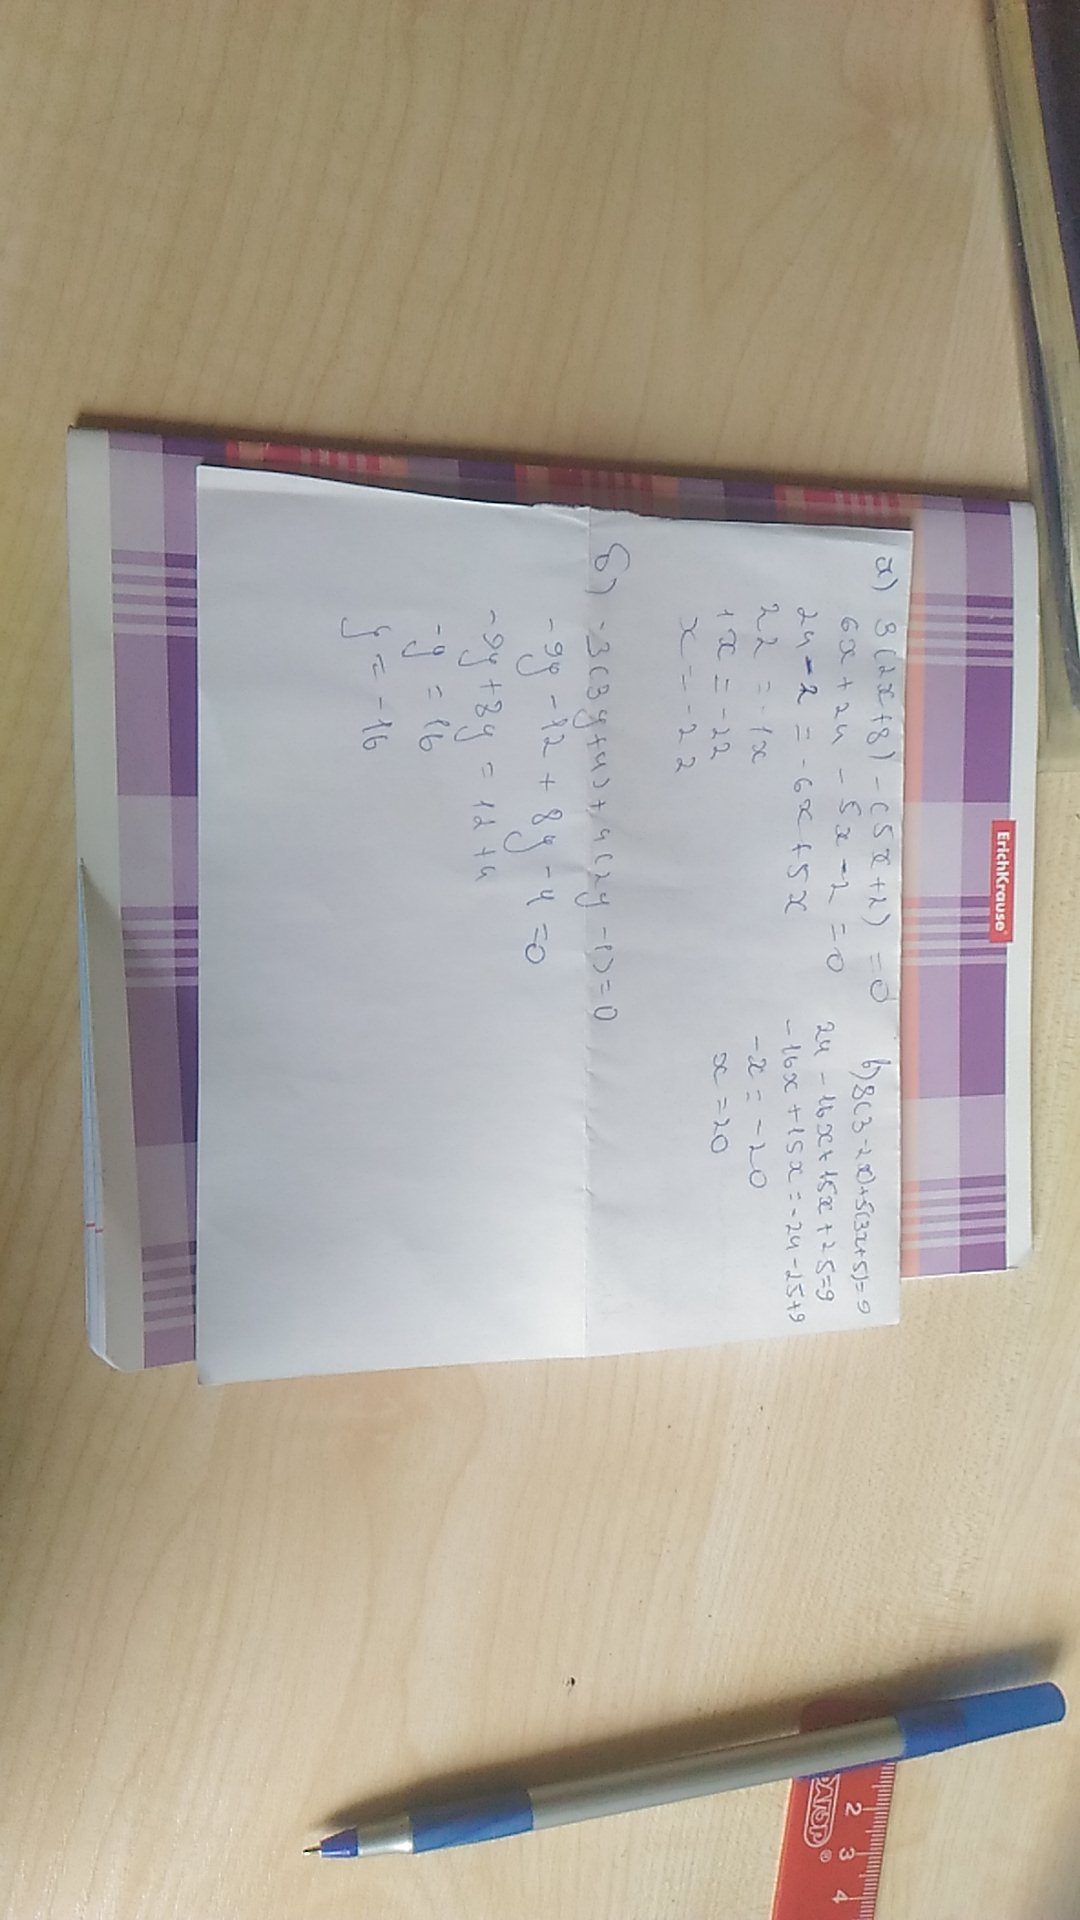 ErichKrause®
а) 3(2x+8) - (5x+2) = 0
6x + 24 - 5x - 2 = 0
24 - 2 = -6x + 5x
22 = -1x
1x = -22
x = -22
б) -3(3y+4) + 4(2y - 1) = 0
-9y - 12 + 8y - 4 = 0
-9y + 8y = 12 + 4
-y = 16
y = -16
в) 8(3-2x)+5(3x+5)=9
24 - 16x + 15x + 25 = 9
-16x + 15x = -24 - 25 + 9
-x = -20
x = 20
2 3 4